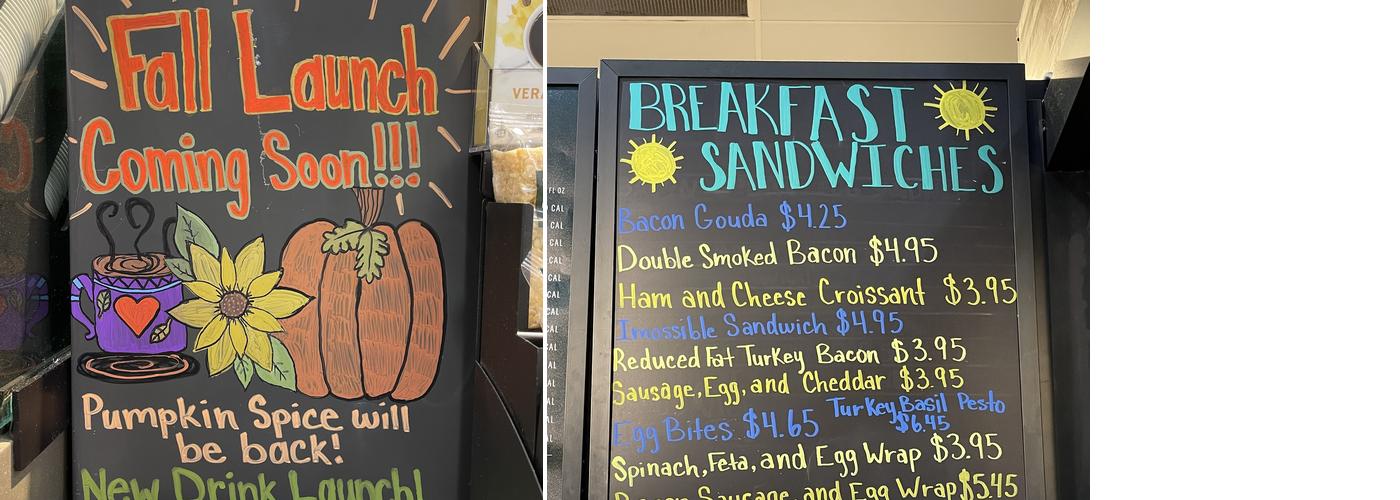 Fall Launch
Coming Soon!!!
Pumpkin Spice will
be back!
New Drink Launch!
VERA
FL OZ
CAL
CAL
CAL
CAL
CAL
CAL
CAL
AL
AL
AL
AL
BREAKFAST
SANDWICHES
Bacon Gouda $4.25
Double Smoked Bacon $4.95
Ham and Cheese Croissant $3.95
Imossible Sandwich $4.95
Reduced Fat Turkey Bacon $3.95
Sausage, Egg, and Cheddar $3.95
Egg Bites $4.65
Turkey Basil Pesto
$6.45
Spinach, Feta, and Egg Wrap $3.95
Sausage, and Egg Wrap $5.45